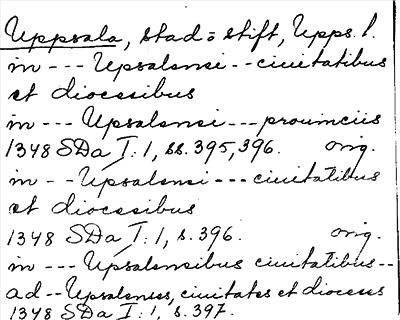 Uppsala, stad o stift, Upps. l.
in --- Upsalensi -- ciuitatibus
et diocesibus
in --- Upsalensi --- prouinciis
1348 SDa I: 1, ss. 395, 396. orig.
in -- Upsalensi --- ciuitatibus
et diocesibus
1348 SDa I: 1, s. 396. orig.
in --- Upsalensibus ciuitatibus --
ad -- Upsalenses, ciuitates et dioceses
1348 SDa I: 1, s. 397.